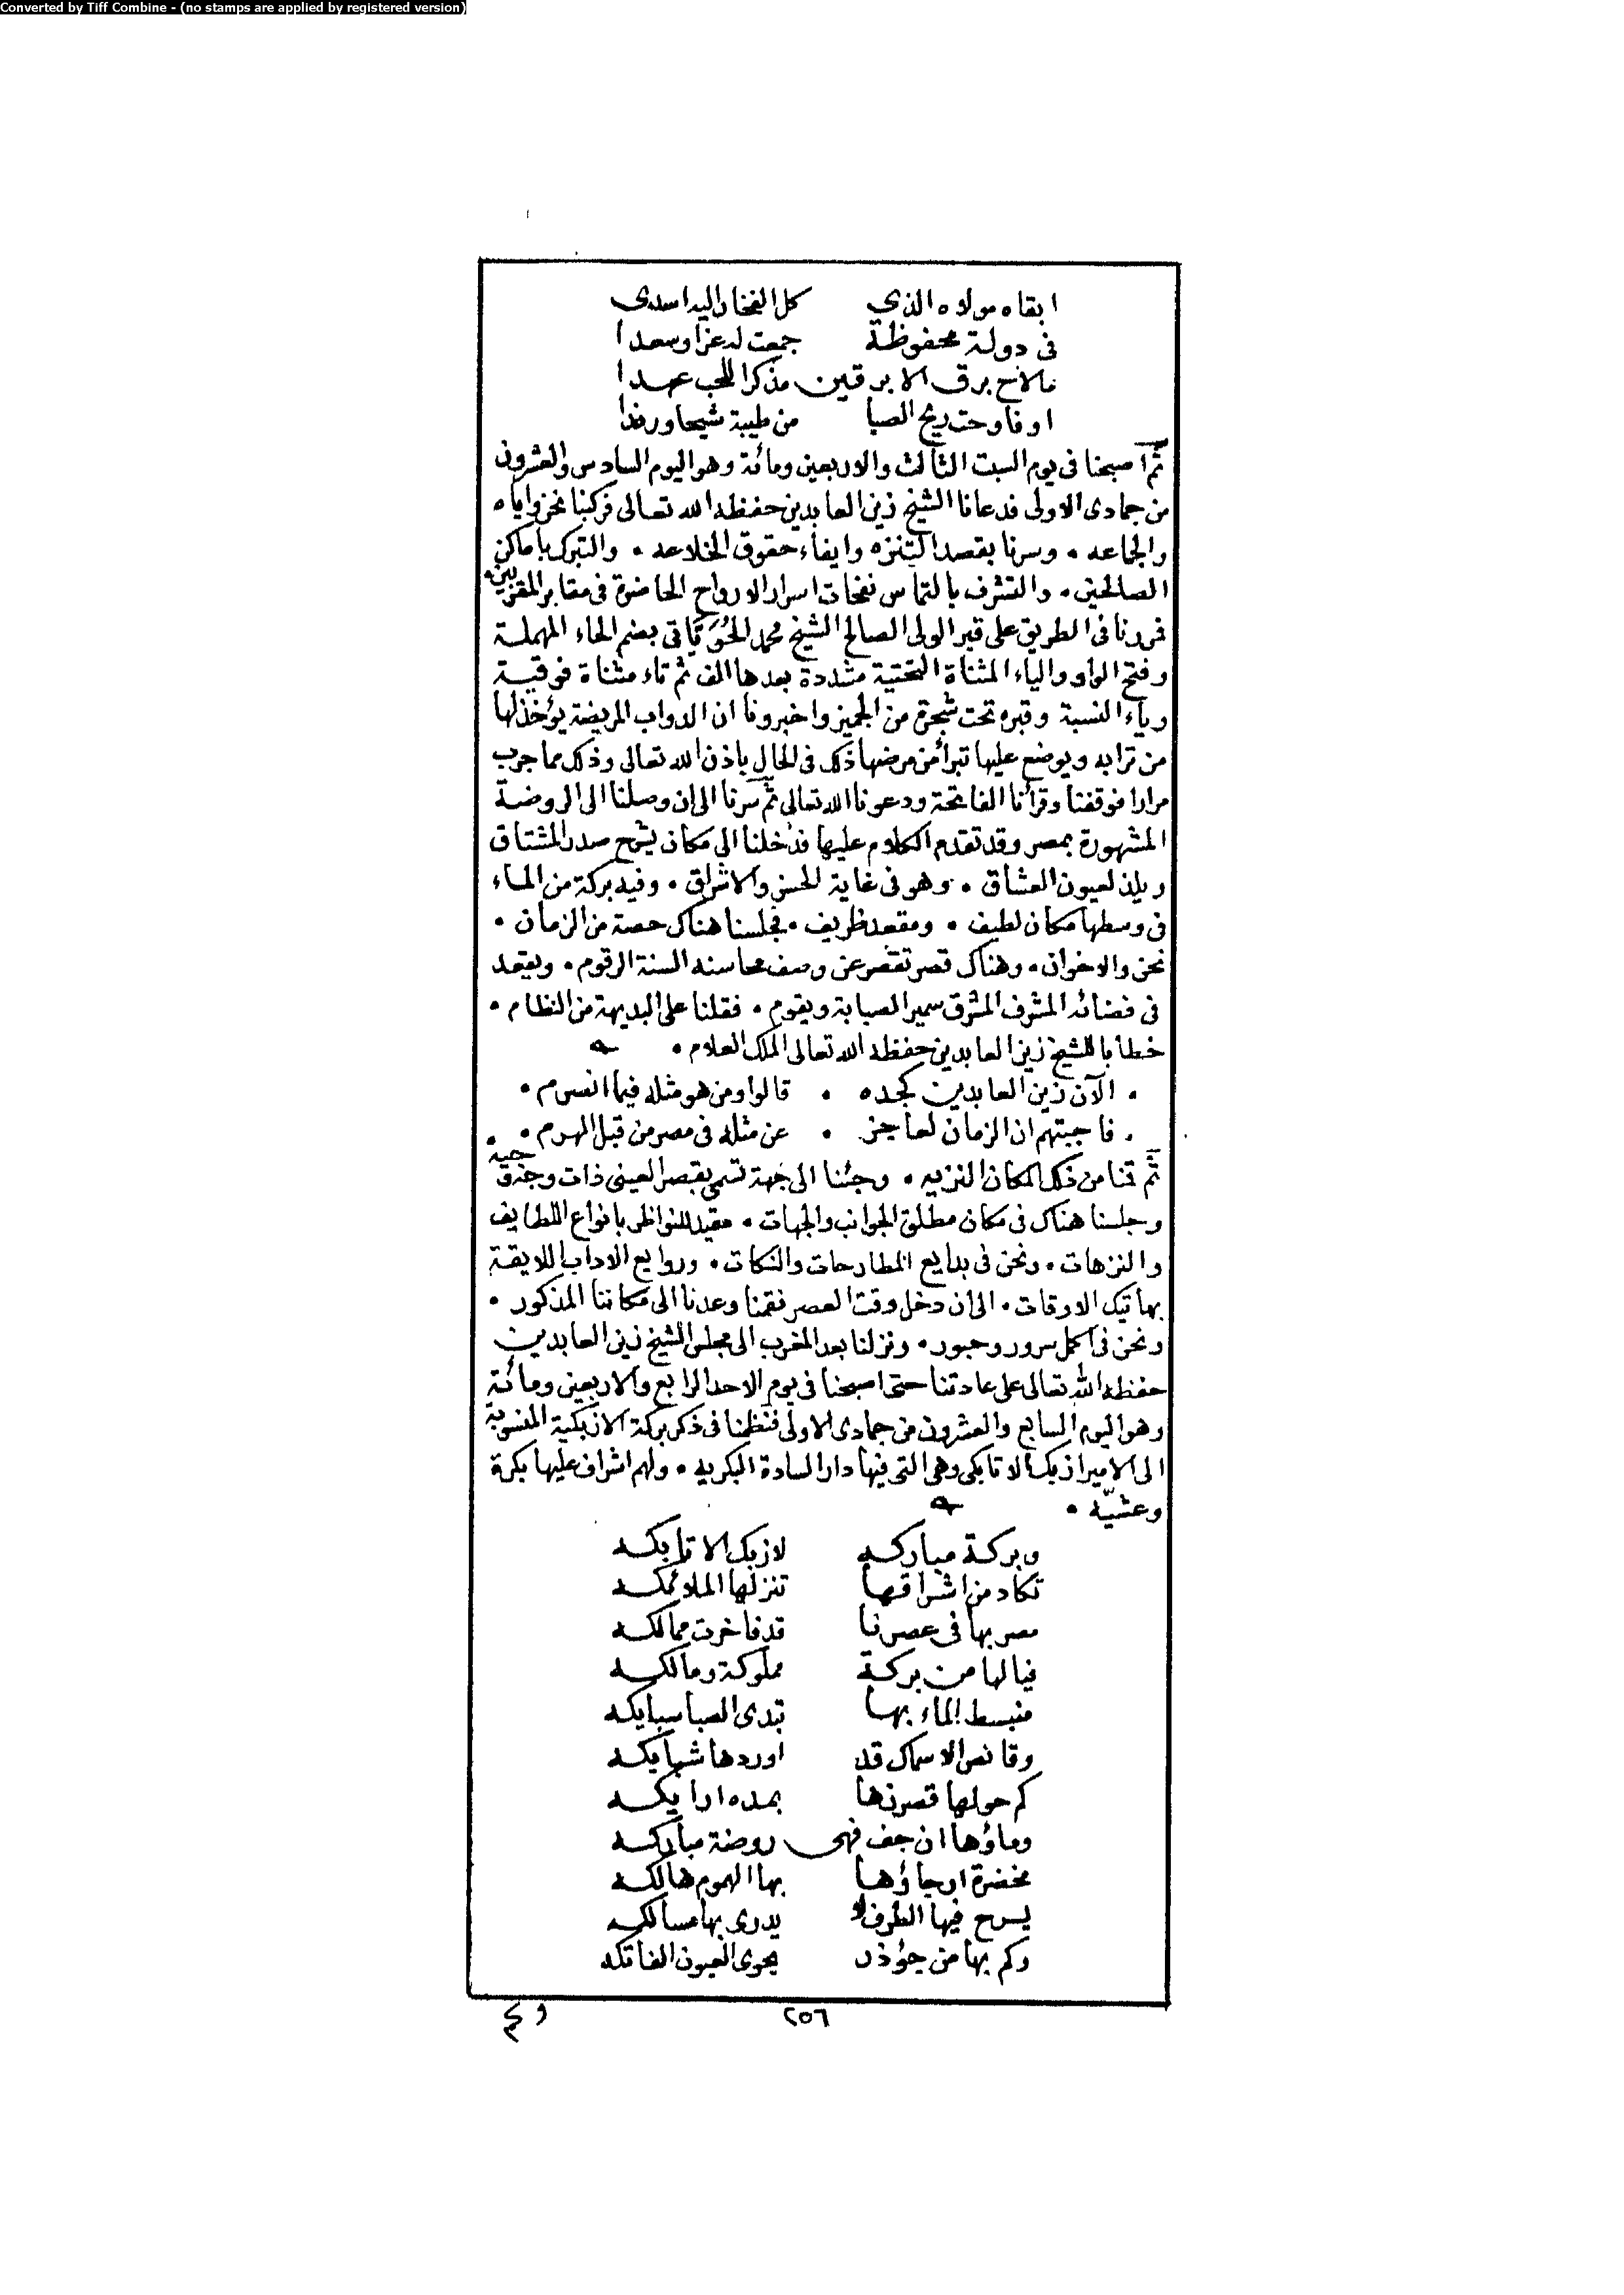 Converted by Tiff Combine - (no stamps are applied by registered version)
ابقاه مولاه الذي كل الفخار اليه اسدى
في دولة محفوظة جمعت له عزا وسعدا
مالاح برق الابرقين مذكرا للحب عهدا
او فاوحت ريح الصبا من طيبة شيحا ورندا
ثم اصبحنا في يوم السبت الثالث والاربعين ومائة وهو اليوم السادس والعشرون
من جمادى الاولى فدعانا الشيخ زين العابدين حفظه الله تعالى فركبنا نحن واياه
والجماعه • وسرنا بقصد التنزه وايفاء حقوق الخلاعه • والتبرك باماكن
الصالحين • والتشرف بالتماس نفحات اسرار الارواح الحاضرة في مقابر المقربين •
فمررنا في الطريق على قبر الولى الصالح الشيخ محمد الحُوَيّاتي بضم الحاء المهملة
وفتح الواو والياء المثناة التحتية مشددة بعدها الف ثم تاء مثناة فوقية
وياء النسبة وقبره تحت شجرة من الجميز واخبرونا ان الدواب المريضة يؤخذ لها
من ترابه ويوضع عليها تبرأ من مرضها ذلك في الحال باذن الله تعالى وذلك مما جرب
مرارا فوقفنا وقرأنا الفاتحة ودعونا الله تعالى ثم سرنا الى ان وصلنا الى الروضة
المشهورة بمصر وقد تقدم الكلام عليها فدخلنا الى مكان يشرح صدر المشتاق
ويلذ لعيون العشاق • وهو في غاية الحسن والاشراق • وفيه بركة من الماء
في وسطها مكان لطيف • ومقعد ظريف • فجلسنا هناك حصة من الزمان •
نحن والاخوان • وهناك قصر تقصر عن وصف محاسنه السنة الرقوم • ويقعد
في فضائه المشرف المشرق سمير الصبابة ويقوم • فقلنا على البديهة من النظام •
خطابا للشيخ زين العابدين حفظه الله تعالى الملك العلام •
• الآن زين العابدين كجده • قالوا ومن هو مثله فيما انسوم •
• فاجبتهم ان الزمان لعاجز • عن مثله في مصر من قبل الهرم •
ثم قمنا من ذلك المكان النزيه • وجئنا الى جهة تسمى بقصر العيني ذات
وجلسنا هناك في مكان مطلق الجوانب والجهات • مقيد للنواظر بانواع اللطايف
والنزهات • ونحن في بدايع المطارحات والنكات • وروايع الاداب اللايقة
بهاتيك الاوقات • الى ان دخل وقت العصر فقمنا وعدنا الى مكاننا المذكور •
ونحن في اكمل سرور وحبور • ونزلنا بعد المغرب الى مجلس الشيخ زين العابدين
حفظه الله تعالى على عادتنا حتى اصبحنا في يوم الاحد الرابع والاربعين ومائة
وهو اليوم السابع والعشرون من جمادى الاولى فنظمنا في ذكر بركة الازبكية المنسوبة
الى الامير ازبك الاتابكي وهي التي فيها دار السادة البكريه • ولهم اشراف عليها بكرة
وعشيّه •
وبركة مباركه لازبك الاتابكه
تكاد من اشراقها تنزلها الملائكه
مصر بها في عصرنا قد فاخرت ممالكه
فيالها من بركة مملوكة ومالكه
منبسط الماء بها تبدى الصبا سبايكه
وقانص الاسماك قد اوردها شبايكه
كم حولها قصر زها بمده ارايكه
وماؤها ان جف فهى روضة مباركه
مخضرة ارجاؤها بها الهموم هالكه
يسرح فيها الطرف لو يدرى بها مسالكه
وكم بها من جؤذر يحوى العيون الفاتكه
٢٥٦
وكم